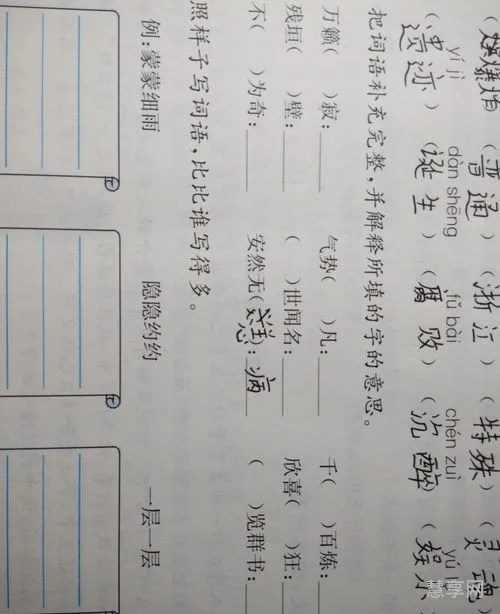 (爆炸) (普通) (浙江) (特殊) (灵魂
yí jì dàn shēng fǔ bài chén zuì yú
(遗迹) (诞生) (腐败) (沉醉) (娱乐
把词语补充完整,并解释所填的字的意思。
万籁( )寂:____ 气势( )凡:____ 千( )百炼:____
残垣( )壁:____ ( )世闻名:____ 欣喜( )狂:____
不( )为奇:____ 安然无(恙):病 ( )览群书:____
照样子写词语,比比谁写得多。
例:蒙蒙细雨 隐隐约约 一层一层
慧享网